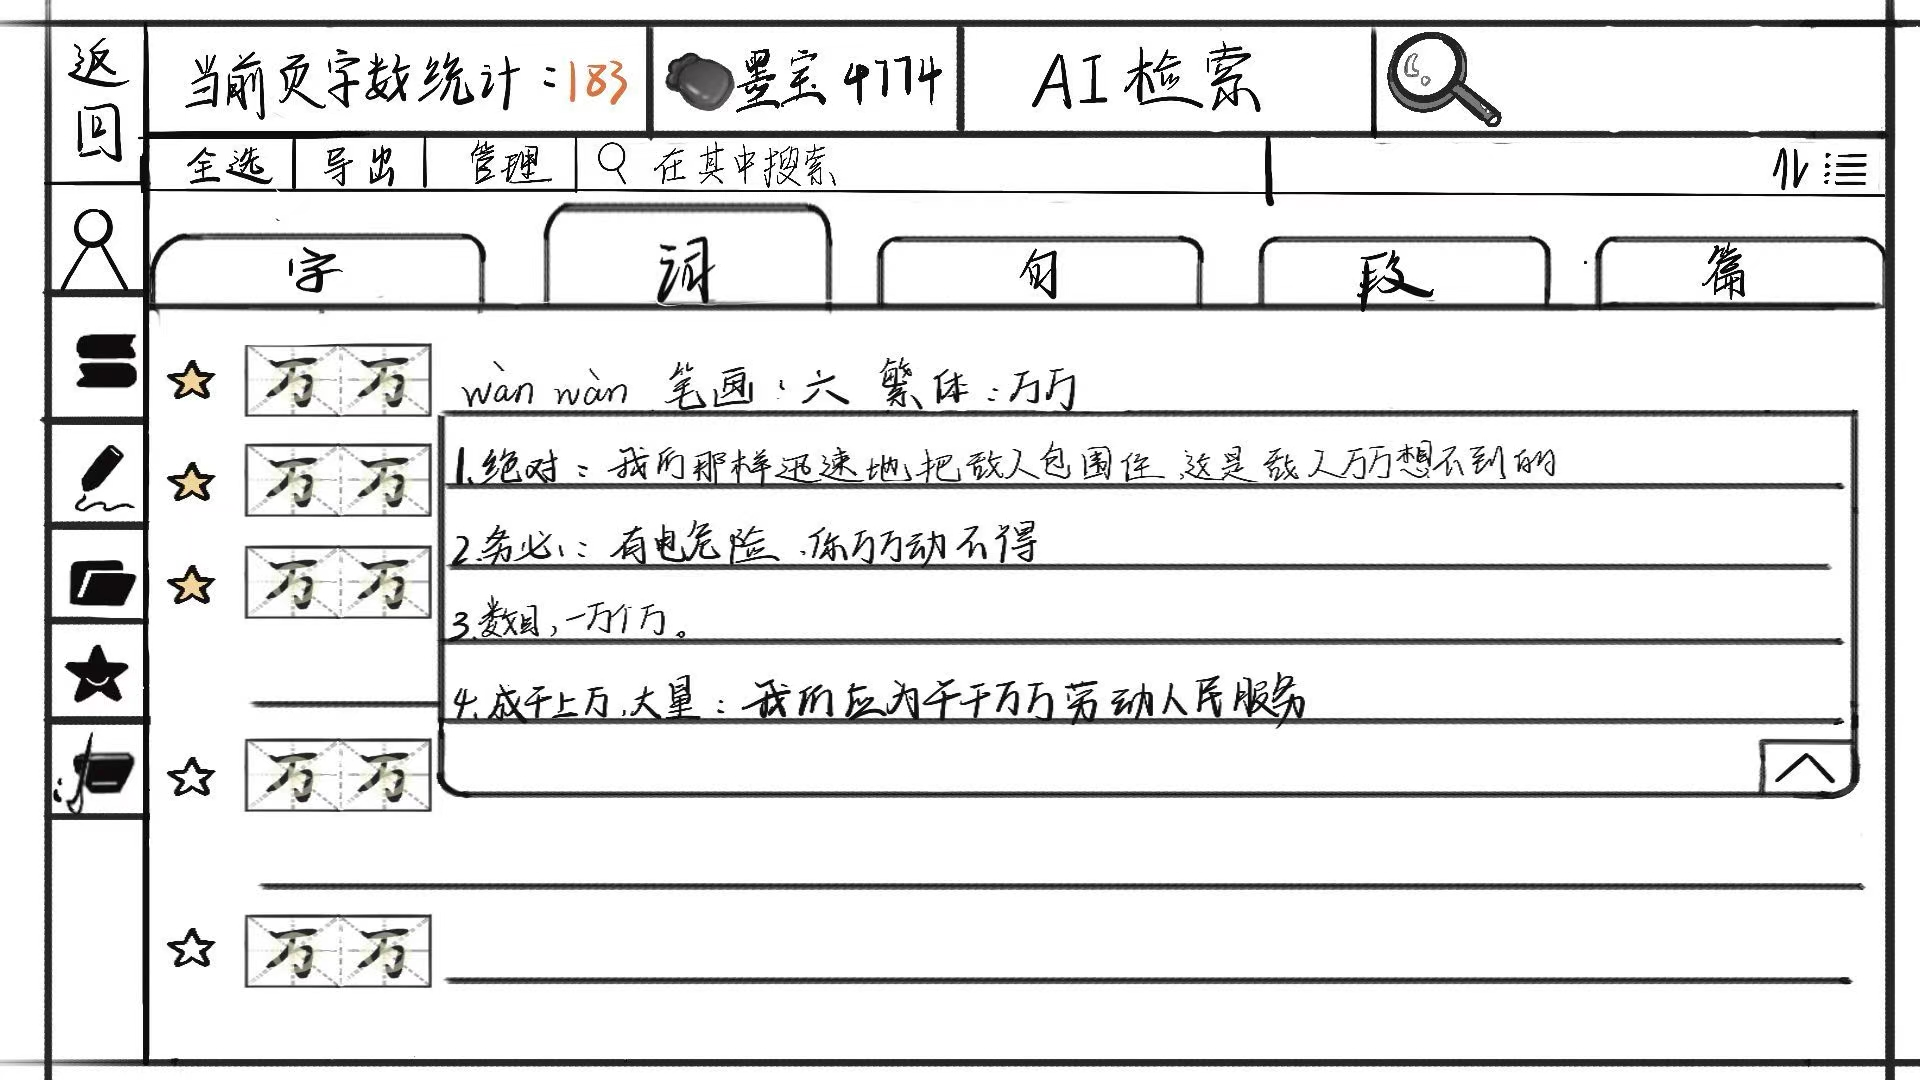 返回
当前页字数统计:183
墨宝 4774
AI检索
全选
导出
管理
在其中搜索
字
词
句
段
篇
万万
wàn wàn 笔画:六 繁体:万万
万万
1.绝对:我们那样迅速地把敌人包围住,这是敌人万万想不到的
2.务必:有电危险,你万万动不得
万万
3.数目,一万个万。
4.成千上万,大量:我们应为千千万万劳动人民服务
万万
万万